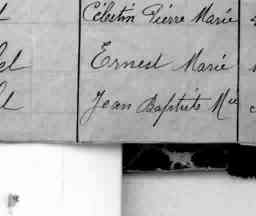 Célestin Pierre Marie
Ernest Marie
Jean Baptiste Mie